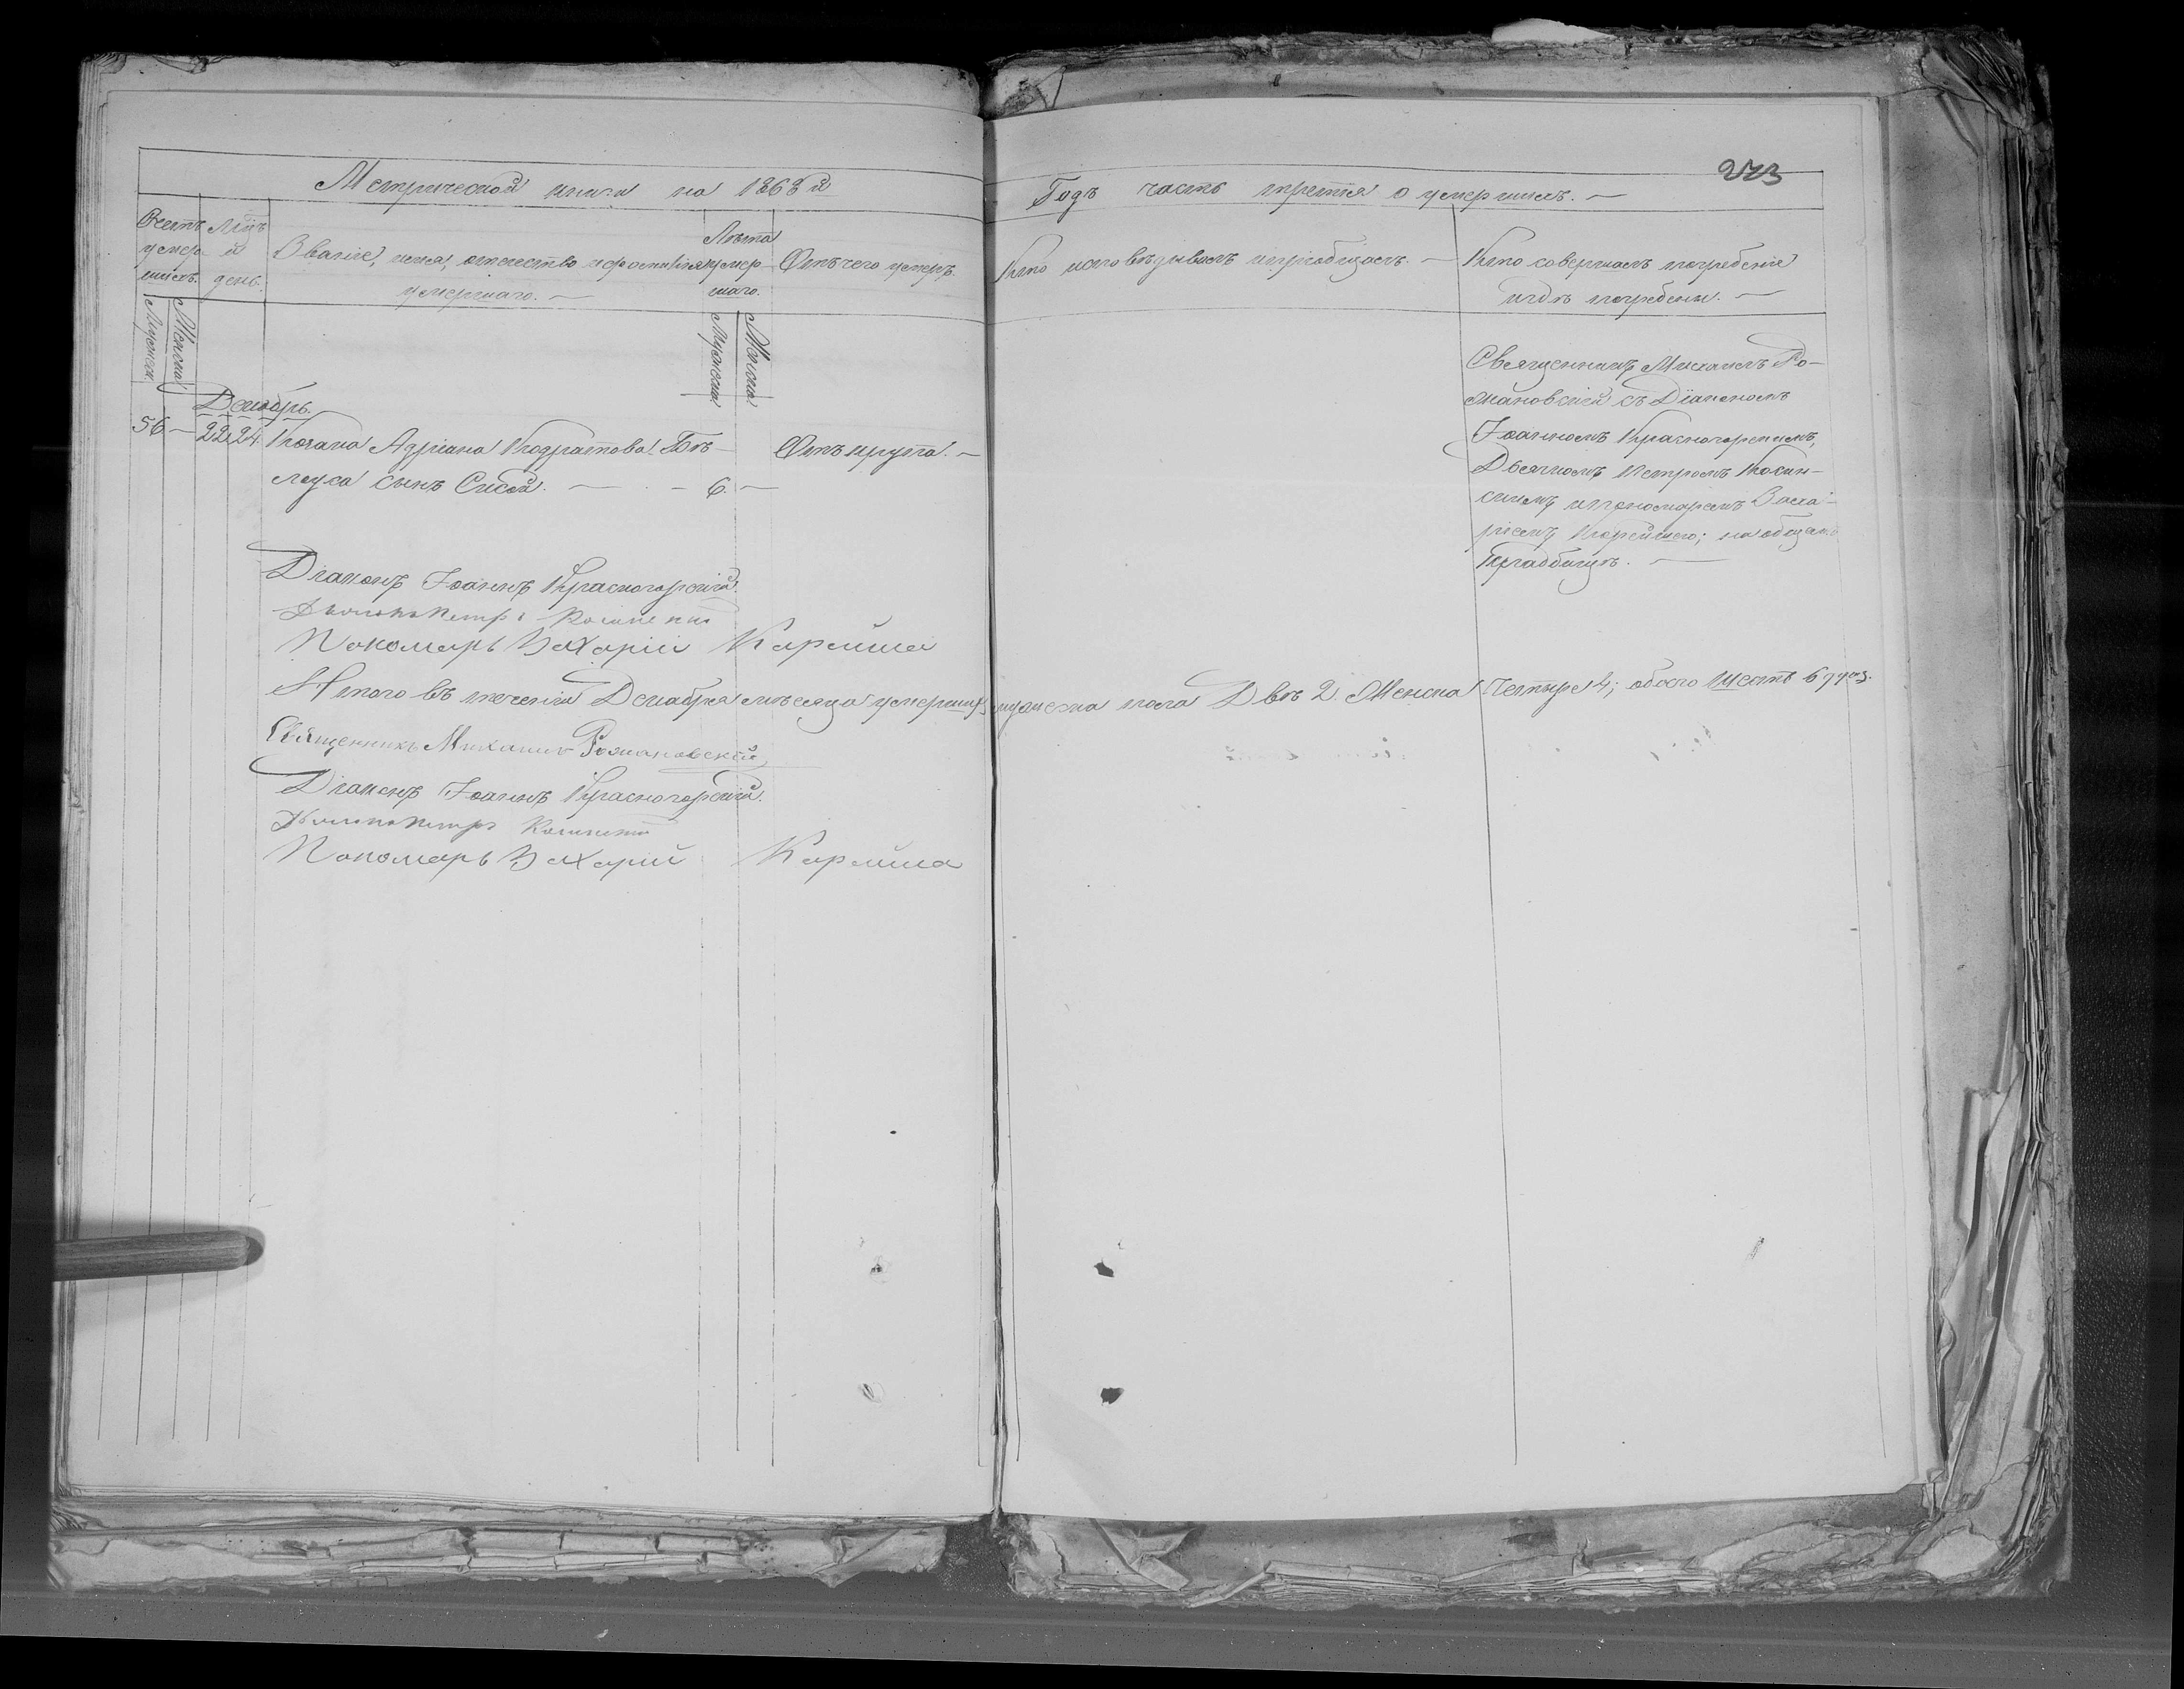 Метрической книги на 1868й
Годъ часть третья о умершихъ. —
273
Счетъ умершихъ.
Мцъ и день.
Званіе, имя, отчество и фамилія умершаго. —
Лѣта умершаго.
Отъ чего умеръ.
Кто исповѣдывалъ и пріобщалъ. —
Кто совершалъ погребеніе
и гдѣ погребены. —
Мужеска
Женска
Мужеска
Женска
Декабрь.
56 — 22. 24.
Козака Адріана Кодратова Бѣ-
лауса сынъ Сисой. — 6. —
Отъ крупа. —
Священникъ Михаилъ Ро-
мановскій съ Діакономъ
Іоанномъ Красногорскимъ,
Дьячкомъ Петромъ Косин-
скимъ и пономаремъ Заха-
ріемъ Корейшею; на общемъ
Кладбищѣ. —
Діаконъ Іоаннъ Красногорскій.
Дьячокъ Петръ Косинскій
Пономарь Захарій Карейша
Итого въ теченіи Декабря мѣсяца умершихъ мужеска пола Двѣ 2. Женска Четыре 4; обоего Шесть 6 душ.
Священникъ Михаилъ Романовскій
Діаконъ Іоаннъ Красногорскій.
Дьячокъ Петръ Косинскій
Пономарь Захарій Карейша